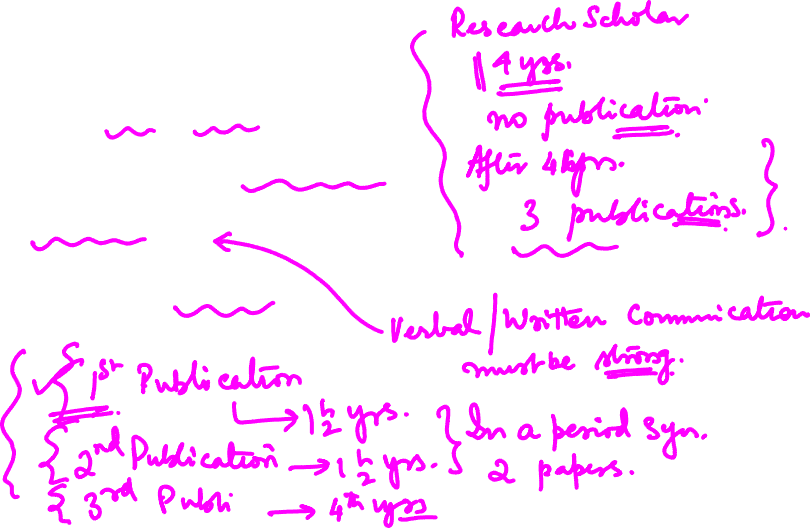 Research Scholar
4 yrs.
no publication.
After 4 yrs.
3 publications.
Verbal / Written Communication
must be strong.
1st Publication
→ 1 1/2 yrs.
2nd Publication → 1 1/2 yrs.
In a period 3 yrs.
2 papers.
3rd Publi → 4th yrs